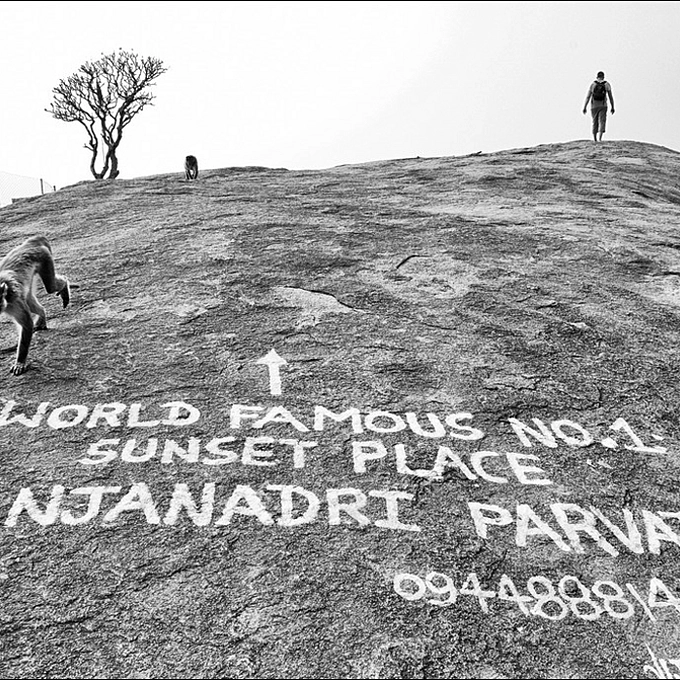 WORLD FAMOUS NO.1.
SUNSET PLACE
NJANADRI PARVA
094488814